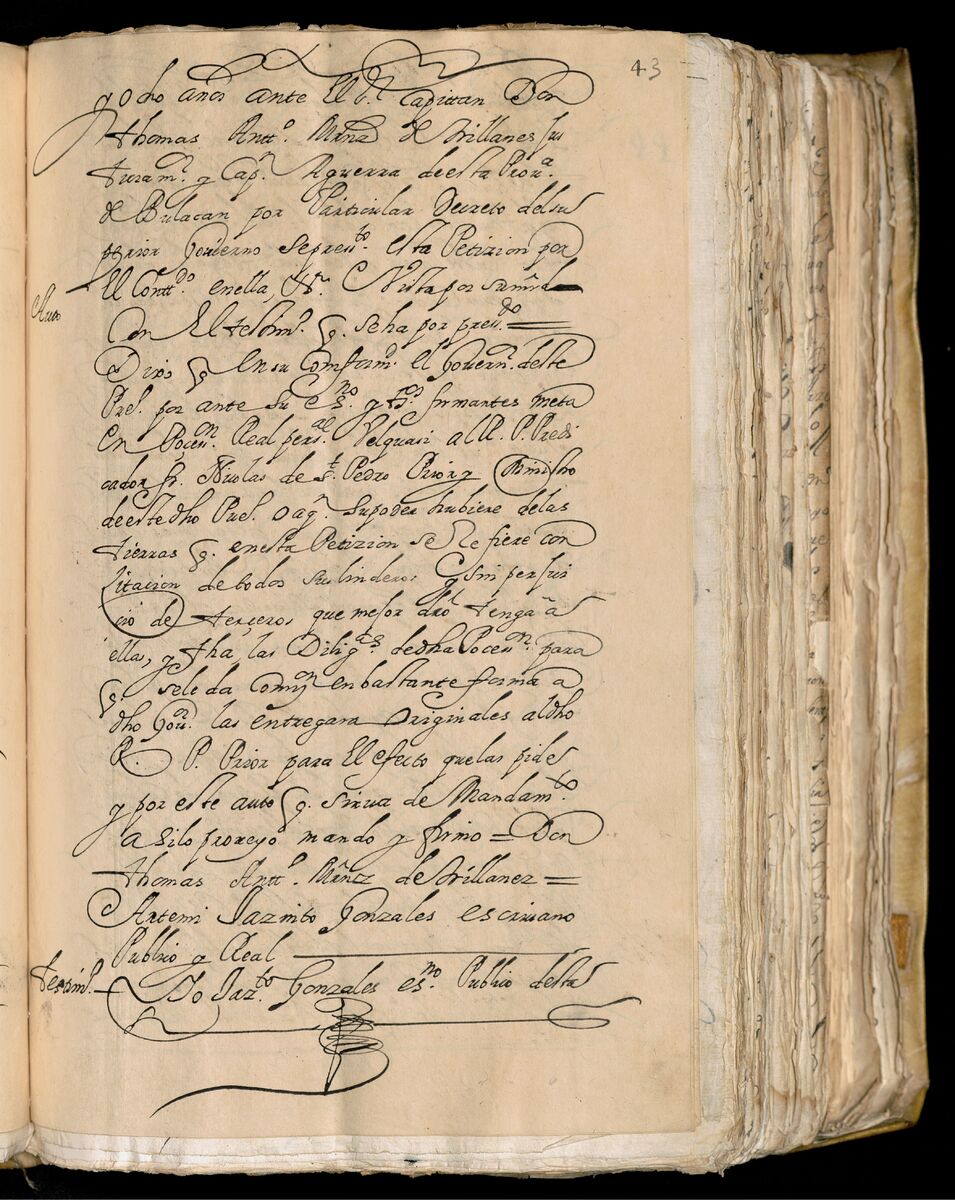 43
y ocho años ante El Sr. Capittan Don
Thomas Antto. Mrnz de Brillanes Ju
turamr. y Capn. Aguerra deesta Prova.
de Bulacan por Particular Decreto delsu
perior Govierno Sepresto. esta Petizion por
El Conttdo. enella, Vista por sumrd
Auto
Con El testimo. q. seha por presdo.
Dixo q En su Comformd. el Governr. deste
Puo. por ante su esno. y tgos. firmantes meta
en Pocesn. Real persal. Velquasi al R. P. Predi
cador fr. Nicolas de St. Pedro Prior y Ministro
deeste dho Puo. Oaqn. supoder hubiere delas
tierras q. enesta Petizion se Refiere con
Zitacion de todos sus linderos y sin perjui
cio de terzeros que mejor dro tenga a
ellas, y fha, las Diligas. dedha Pocesn. para
q. sele da Comisn en bastante forma a
dho Gour. las entregara originales aldho
R. P. Prior para El efecto que las pide
y por este auto q. sirva de Mandamto.
asilo proveyo mando y firmo = Don
Thomas Antto. Mrntz de Brillanez =
Antemi Jazinto Gonzales escrivano
Publico y Real
Testimo.
Yo Jazto. Gonzales esno. Publico desta